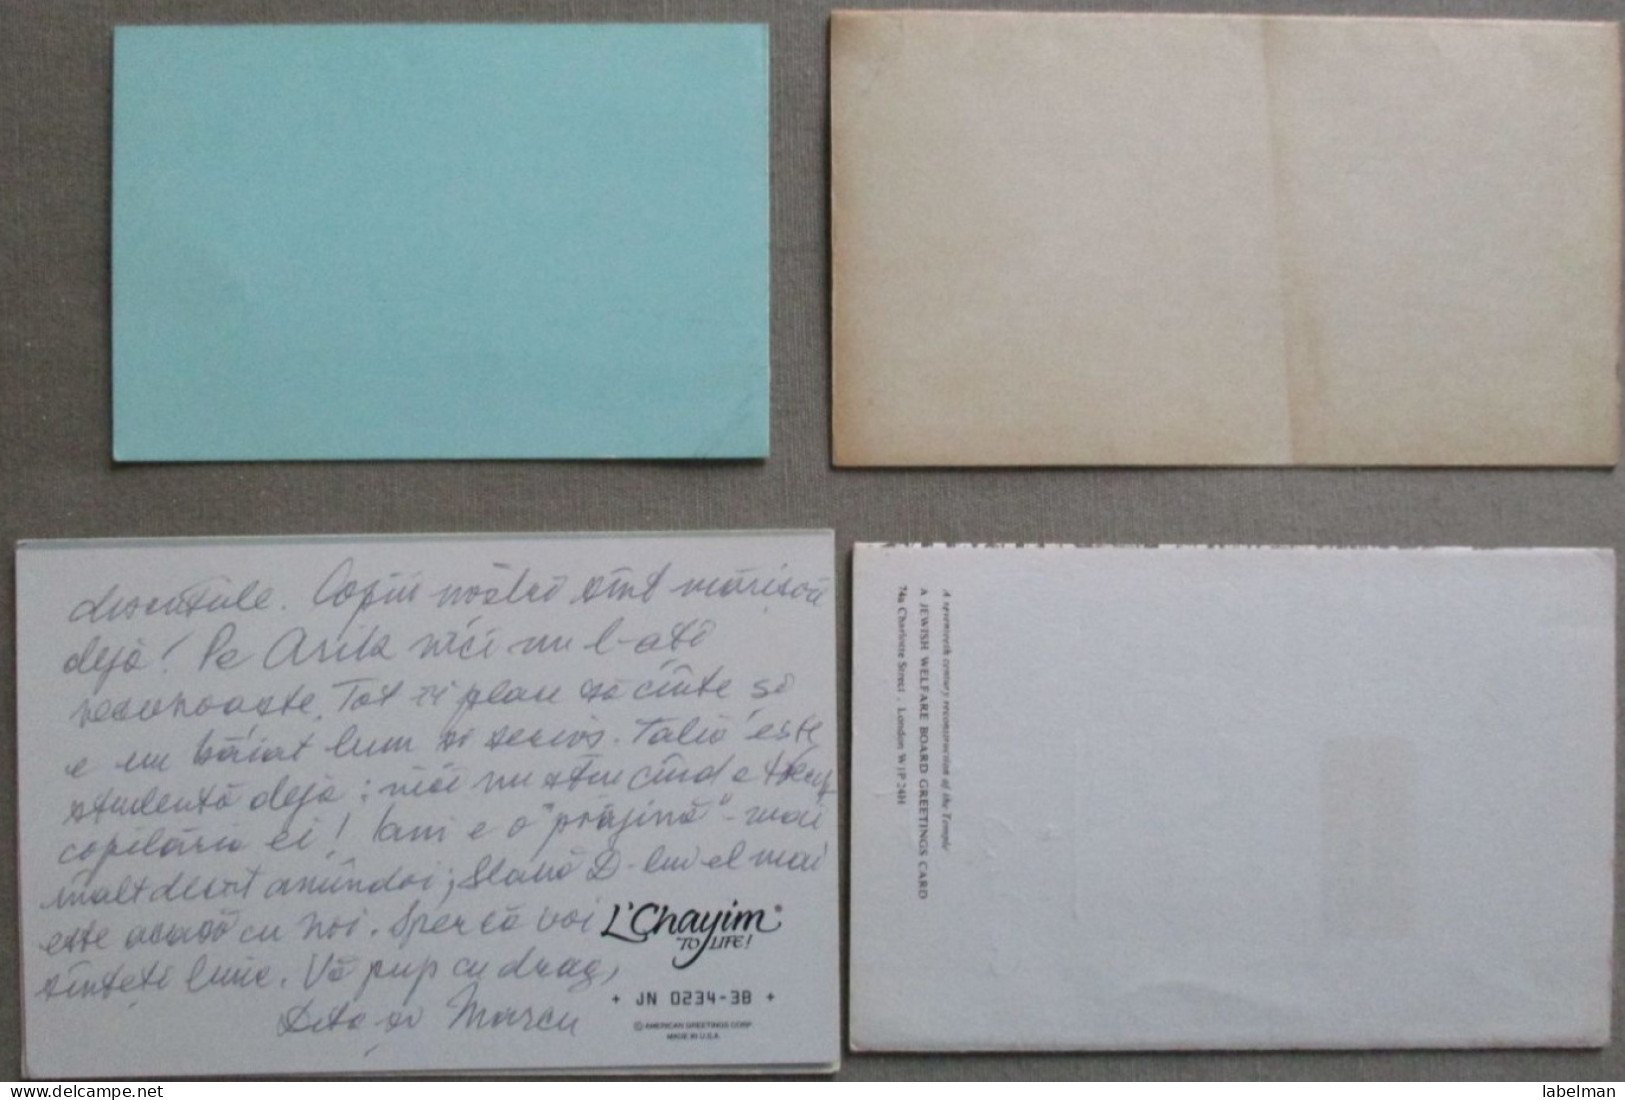 discutiile. Copiii noștri sînt mărișori
deja! Pe Arik nici nu l-ați
recunoaște. Tot zi plan să cînte și
e un băiat bun și serios. Talia este
studentă deja; nici nu știu cînd a trecut
copilăria ei! Iani e o "prăjină" - mai
înalt decît amîndoi; slavă D-lui el mai
este acasă cu noi. Sper că voi
sînteți bine. Vă pup cu drag,
Dita și Marcu
L'Chayim®
TO LIFE!
+ JN 0234-3B +
© AMERICAN GREETINGS CORP.
MADE IN U.S.A.
A seventeeth century reconstruction of the Temple
A JEWISH WELFARE BOARD GREETINGS CARD
74a Charlotte Street , London W1P 24H
labelman
delcampe.net